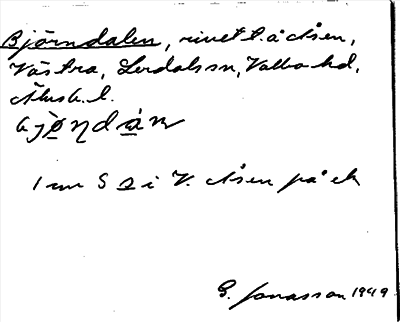 Björndalen, rivet t. å Åsen,
Västra, Lerdals sn, Valbo hd,
Älvsb. l.
bjǿndàn
1 cm S i V. Åsen på ek
G. Jonasson 1949